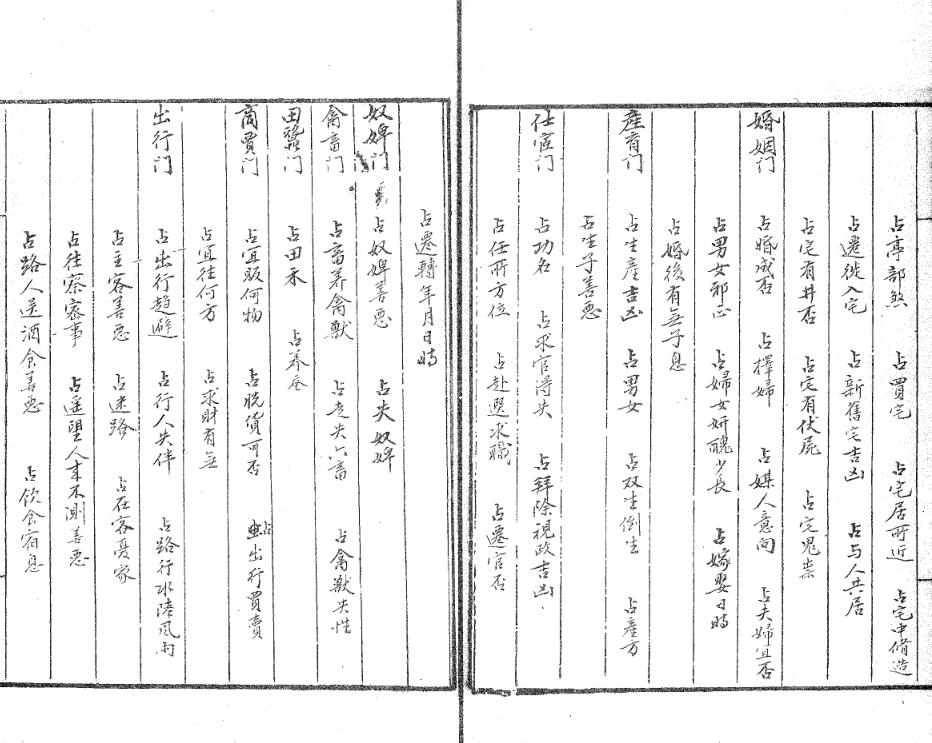 占亭部煞 占買宅 占宅居所近 占宅中脩造
占遷徙入宅 占新舊宅吉凶 占与人共居
占宅有井否 占宅有伏屍 占宅鬼祟
婚姻门 占婚成否 占擇婦 占媒人意向 占夫婦宜否
占男女邪正 占婦女妍醜少長 占嫁娶日時
占婚後有無子息
產育门 占生產吉凶 占男女 占双生倒生 占產方
占生子善惡
仕宦门 占功名 占求官得失 占拜除視政吉凶
占任所方位 占赴選求職 占遷官否
占遷轉年月日時
奴婢门 占奴婢善惡 占失奴婢
禽畜门 占畜养禽獸 占走失六畜 占禽獸失性
田蠶门 占田禾 占养蚕
商賈门 占宜販何物 占脱貨可否 占出行買賣
占宜往何方 占求財有無
出行门 占出行趨避 占行人失伴 占路行水陸風雨
占主客善惡 占迷路 占在客憂家
占往來密事 占遥望人来不測善惡
占路人送酒食善惡 占飲食宿息